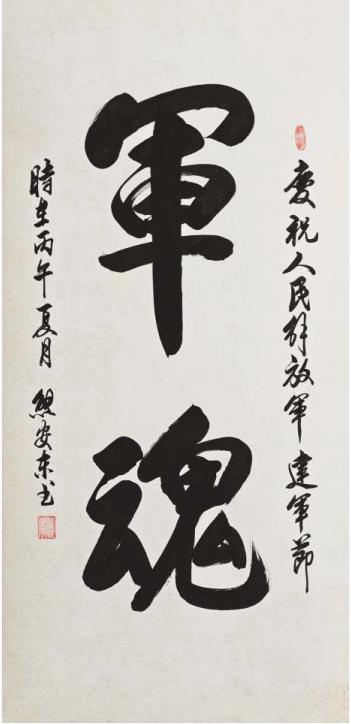 慶祝人民解放軍建軍節
軍魂
時在丙午夏月 熊安東书